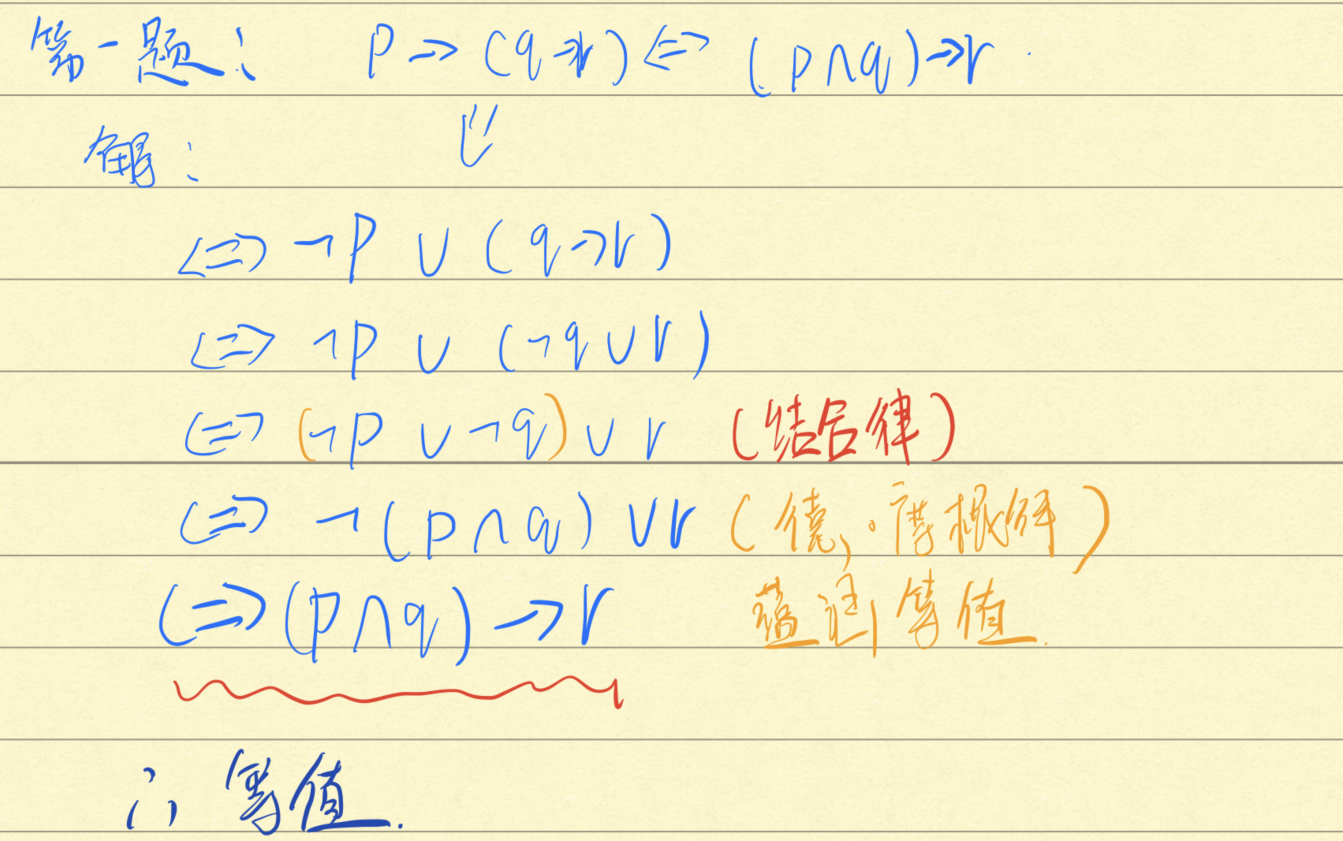 第一题: p → (q→r) ⇔ (p∧q)→r.
⇓
解:
⇔ ¬p ∨ (q→r)
⇔ ¬p ∨ (¬q∨r)
⇔ (¬p ∨ ¬q) ∨ r (结合律)
⇔ ¬(p∧q) ∨r (德·摩根律)
⇔ (p∧q) → r 蕴涵等值.
∴ 等值.